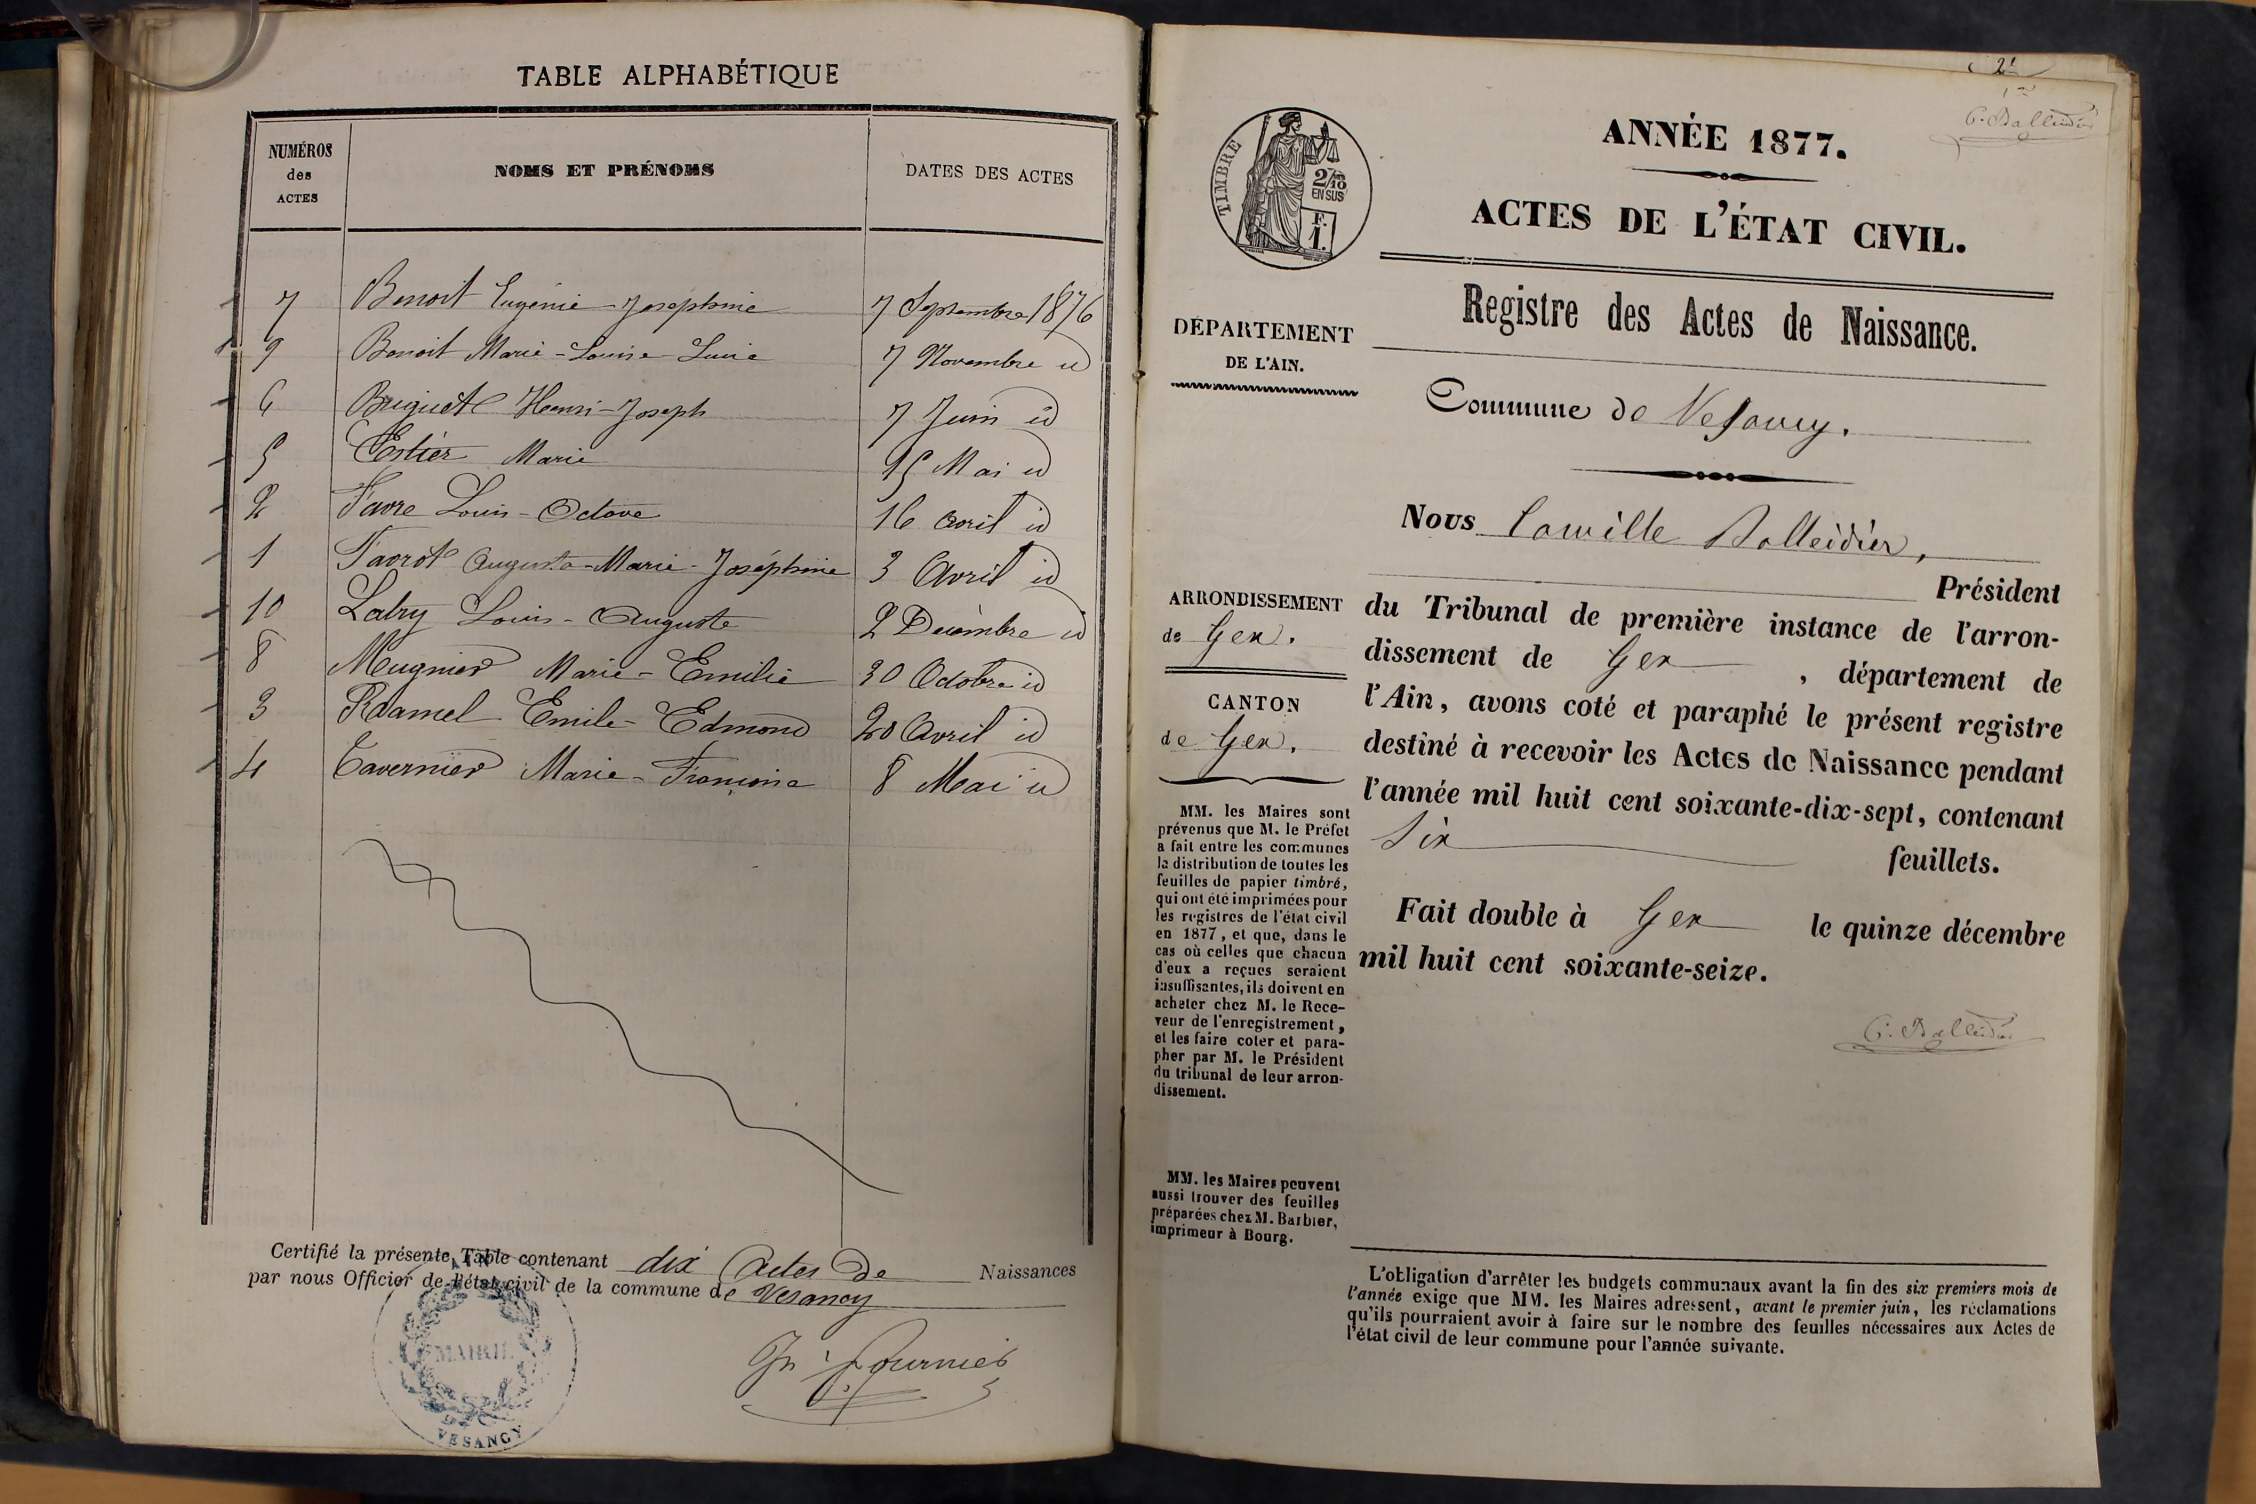 TABLE ALPHABÉTIQUE
NUMÉROS des ACTES
NOMS ET PRÉNOMS
DATES DES ACTES
7 Benoit Eugénie-Joséphine 7 Septembre 1876
9 Benoit Marie-Louise Lucie 7 Novembre id
6 Bruguet Henri-Joseph 7 Juin id
5 Estier Marie 15 Mai id
2 Favre Louis-Octave 16 Avril id
1 Favrot Augusta-Marie-Joséphine 3 Avril id
10 Labry Louis-Auguste 2 Décembre id
8 Mugnier Marie-Emilie 30 Octobre id
3 Ramel Emile-Edmond 20 Avril id
4 Tavernier Marie-Françoise 8 Mai id
Certifié la présente Table contenant dix Actes de Naissances
par nous Officier de l'état civil de la commune de Vesancy
Fournier
MAIRIE
VESANCY
C. Balleidier
TIMBRE
2/10 EN SUS
F. 1.
ANNÉE 1877.
ACTES DE L'ÉTAT CIVIL.
Registre des Actes de Naissance.
DÉPARTEMENT
DE L'AIN.
Commune de Vesancy.
Nous Camille Balleidier,
Président
du Tribunal de première instance de l'arron-
dissement de Gex, département de
l'Ain, avons coté et paraphé le présent registre
destiné à recevoir les Actes de Naissance pendant
l'année mil huit cent soixante-dix-sept, contenant
Six feuillets.
Fait double à Gex le quinze décembre
mil huit cent soixante-seize.
C. Balleidier
ARRONDISSEMENT
de Gex.
CANTON
de Gex.
MM. les Maires sont
prévenus que M. le Préfet
a fait entre les communes
la distribution de toutes les
feuilles de papier timbré,
qui ont été imprimées pour
les registres de l'état civil
en 1877, et que, dans le
cas où celles que chacun
d'eux a reçues seraient
insuffisantes, ils doivent en
acheter chez M. le Rece-
veur de l'enregistrement,
et les faire coter et para-
pher par M. le Président
du tribunal de leur arron-
dissement.
MM. les Maires peuvent
aussi trouver des feuilles
préparées chez M. Barbier,
imprimeur à Bourg.
L'obligation d'arrêter les budgets communaux avant la fin des six premiers mois de
l'année exige que MM. les Maires adressent, avant le premier juin, les réclamations
qu'ils pourraient avoir à faire sur le nombre des feuilles nécessaires aux Actes de
l'état civil de leur commune pour l'année suivante.